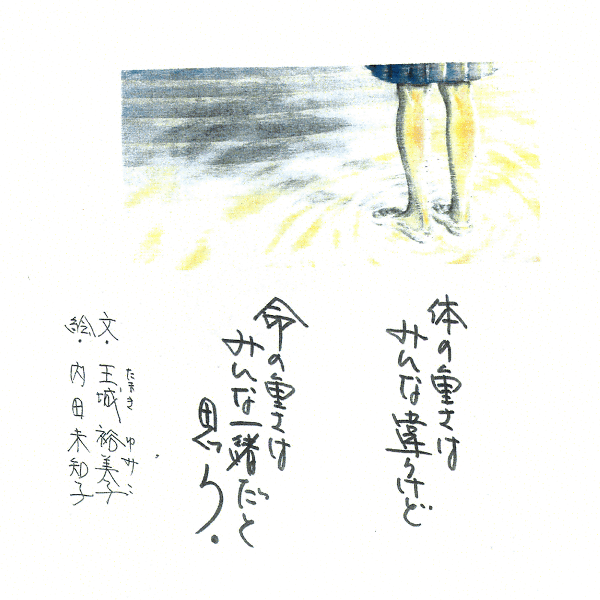 体の重さは
みんな違うけど
命の重さは
みんな一緒だと
思う.
文・玉城 裕美子
たまき ゆみこ
絵・内田未知子